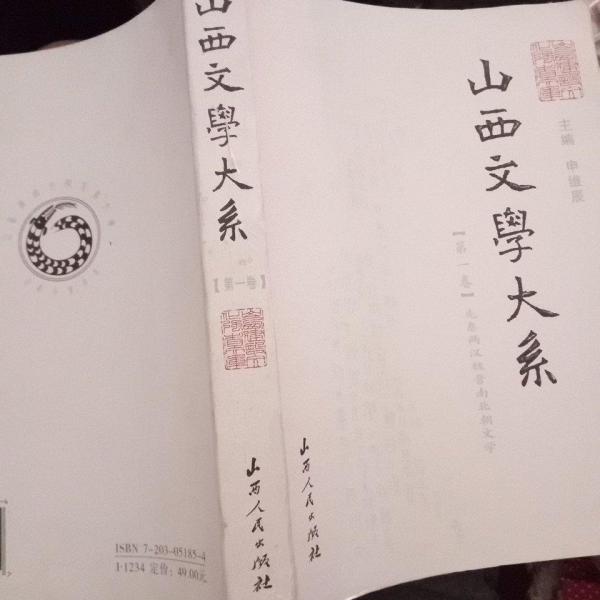 山西文學大系
主编 申维辰
【第一卷】先秦两汉魏晋南北朝文学
山西人民出版社
山西文學大系
【第一卷】
山西人民出版社
ISBN 7-203-05185-4
I·1234 定价：49.00元